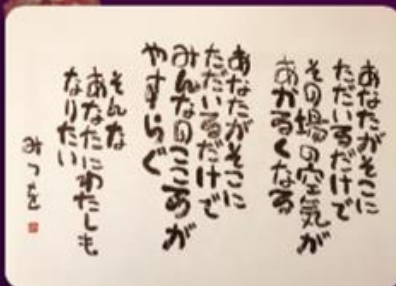 あなたがそこに
ただいるだけで
その場の空気が
あかるくなる
あなたがそこに
ただいるだけで
みんなのこころが
やすらぐ
そんな
あなたにわたしも
なりたい
みつを